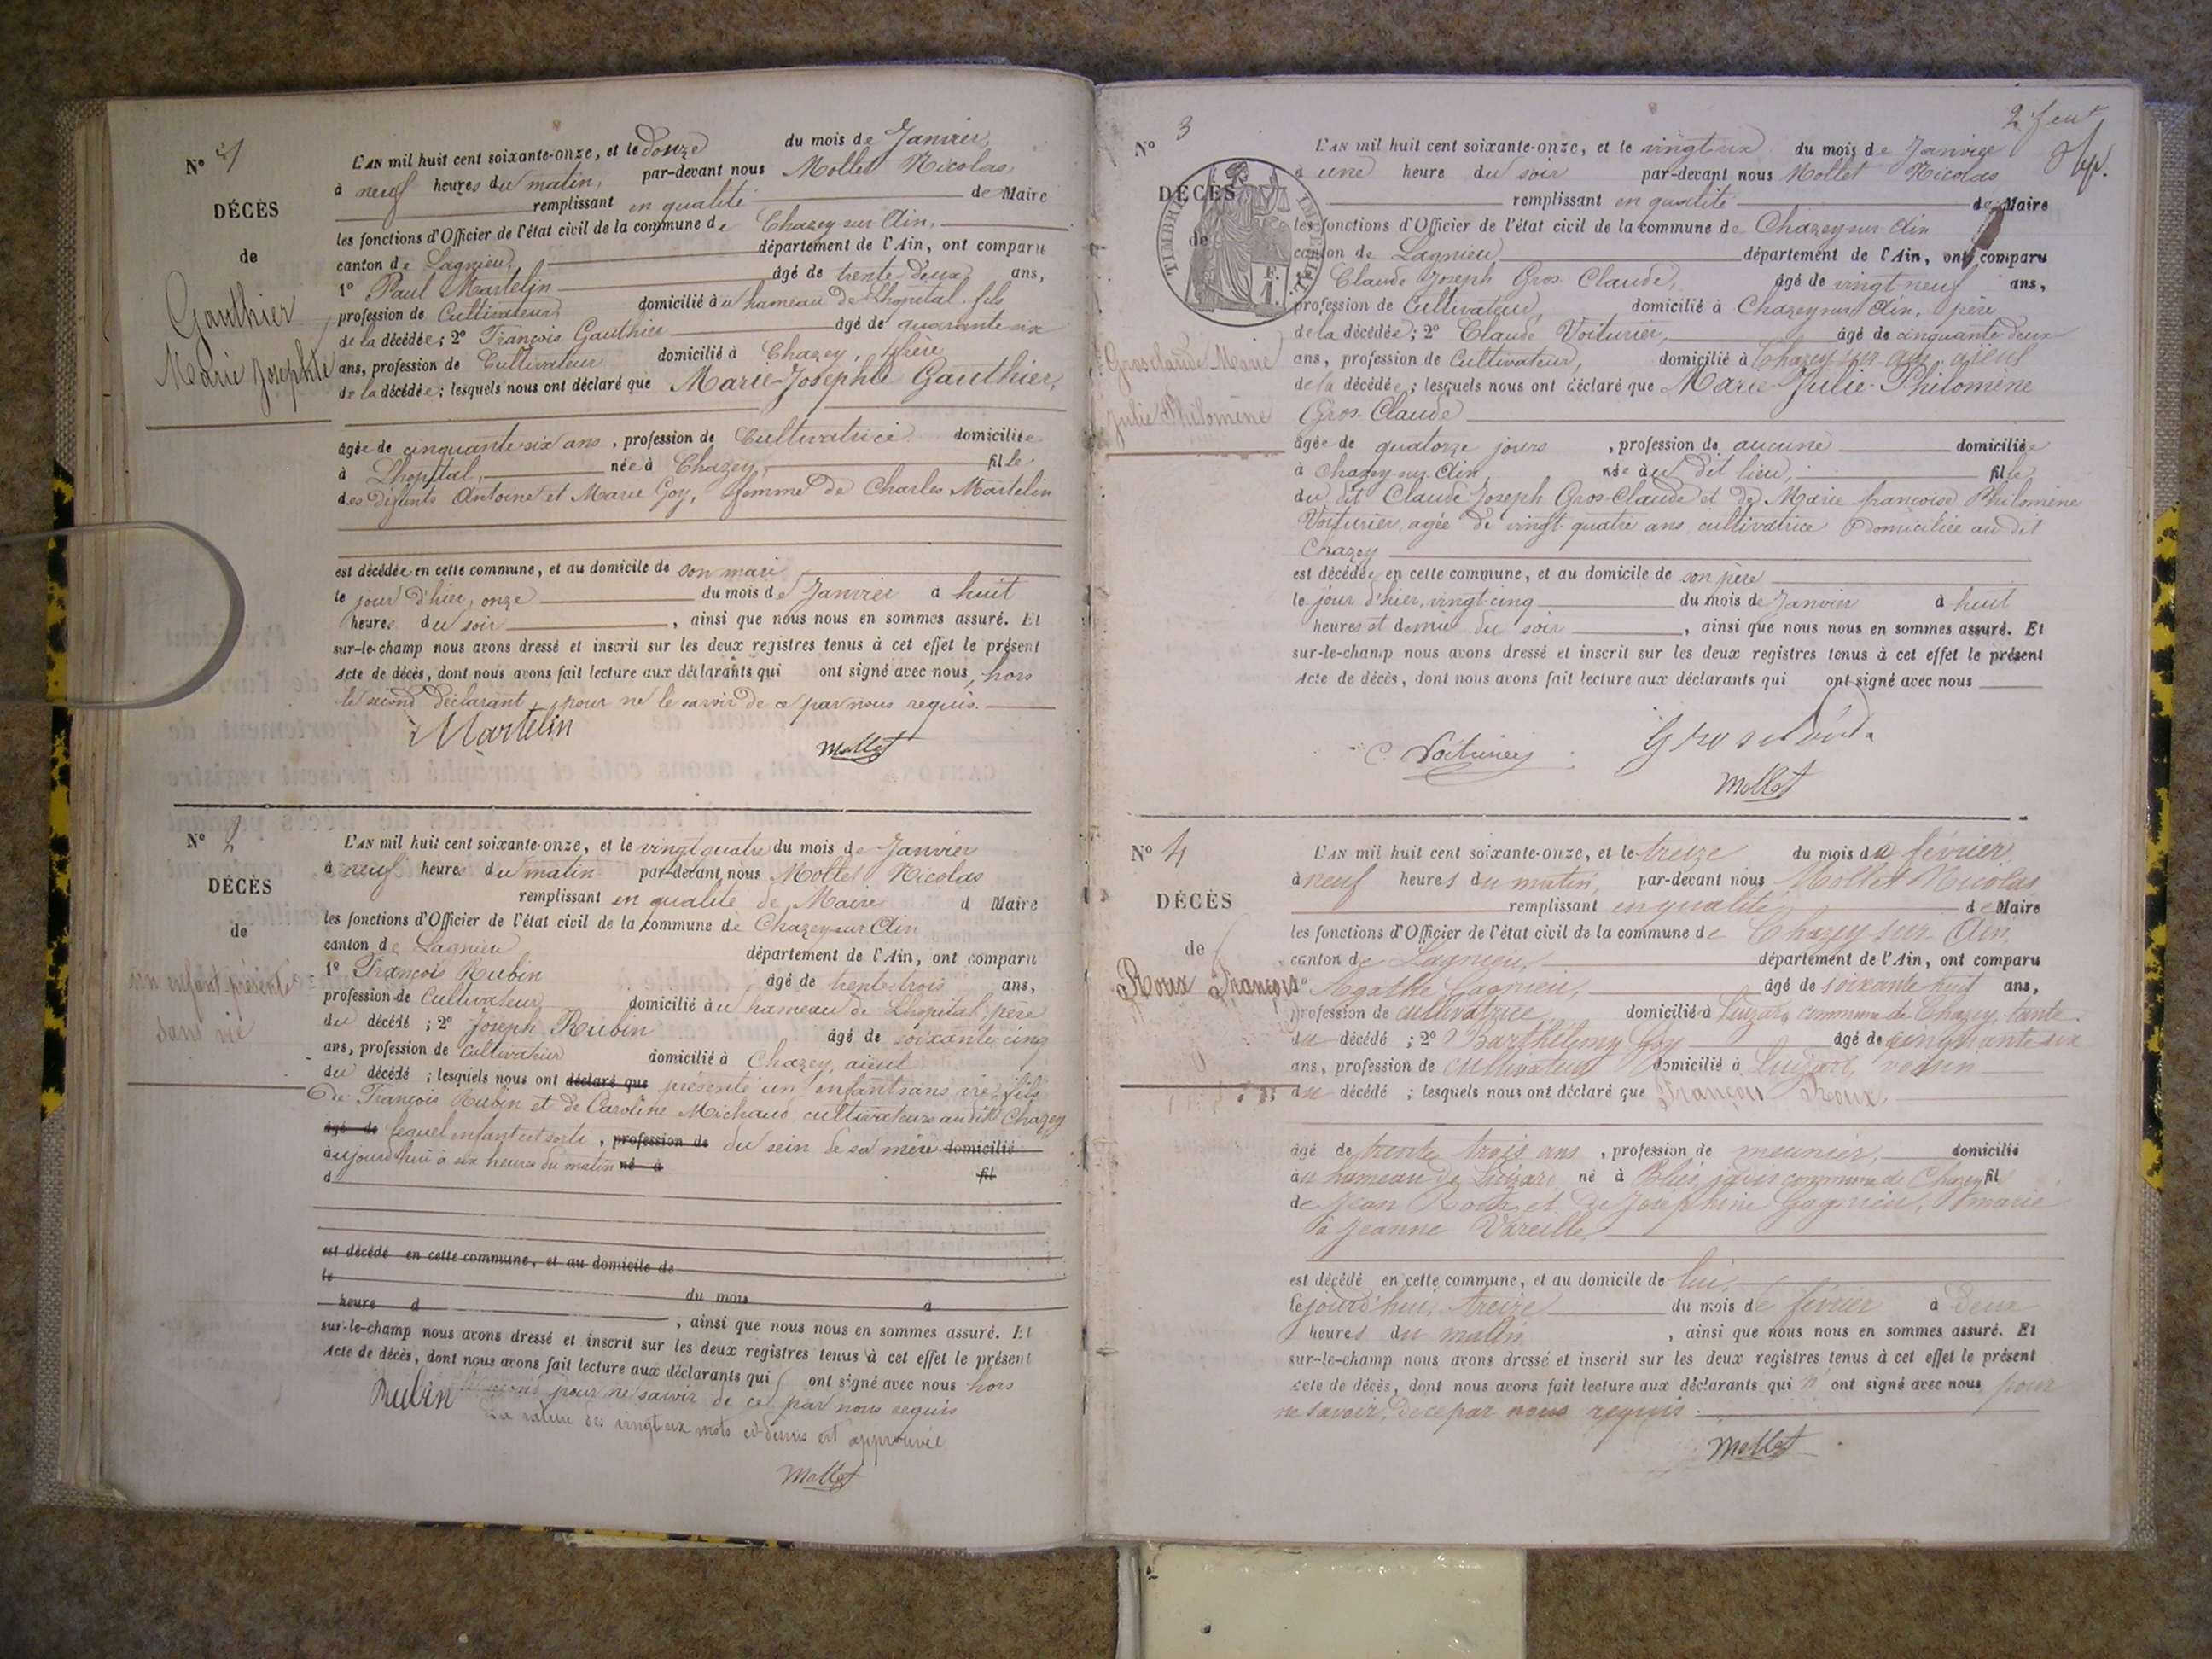 N° 1
DÉCÈS
de
Gauthier
Marie Josephte
L'AN mil huit cent soixante-onze, et le douze du mois de Janvier,
à neuf heures du matin, par-devant nous Mollet Nicolas
remplissant en qualité de Maire
les fonctions d'Officier de l'état civil de la commune de Chazey sur Ain,
canton de Lagnieu, département de l'Ain, ont comparu
1° Paul Martelin âgé de trente-deux ans,
profession de Cultivateur, domicilié au hameau de Lhopital, fils
de la décédée ; 2° François Gauthier âgé de quarante-six
ans, profession de Cultivateur domicilié à Chazey, frère
de la décédée ; lesquels nous ont déclaré que Marie-Josephte Gauthier,
âgée de cinquante-six ans, profession de Cultivatrice domiciliée
à Lhopital, née à Chazey, fille
des défunts Antoine et Marie Goy, femme de Charles Martelin
est décédée en cette commune, et au domicile de son mari
le jour d'hier, onze du mois de Janvier à huit
heures du soir, ainsi que nous nous en sommes assuré. Et
sur-le-champ nous avons dressé et inscrit sur les deux registres tenus à cet effet le présent
Acte de décès, dont nous avons fait lecture aux déclarants qui ont signé avec nous, hors
le second déclarant, pour ne le savoir de ce par nous requis.
Martelin
Mollet
N° 2
DÉCÈS
de
un enfant présenté
sans vie
L'AN mil huit cent soixante-onze, et le vingt quatre du mois de Janvier
à neuf heures du matin par-devant nous Mollet Nicolas
remplissant en qualité de Maire d Maire
les fonctions d'Officier de l'état civil de la commune de Chazey sur Ain
canton de Lagnieu département de l'Ain, ont comparu
1° François Rubin âgé de trente-trois ans,
profession de Cultivateur domicilié au hameau de Lhopital, père
du décédé ; 2° Joseph Rubin âgé de soixante cinq
ans, profession de Cultivateur domicilié à Chazey, aieul
du décédé ; lesquels nous ont déclaré que présenté un enfant sans vie, fils
de François Rubin et de Caroline Michaud cultivateurs audit Chazey
âgé de lequel enfant est sorti, profession de du sein de sa mère domicilié
aujourd'hui à six heures du matin né à
d fil
est décédé en cette commune, et au domicile de
le du mois à
heure d , ainsi que nous nous en sommes assuré. Et
sur-le-champ nous avons dressé et inscrit sur les deux registres tenus à cet effet le présent
Acte de décès, dont nous avons fait lecture aux déclarants qui ont signé avec nous hors
le second pour ne savoir de ce par nous requis
Rubin
La rature des vingt six mots ci-dessus est approuvée
Mollet
2 feut
N° 3
DÉCÈS
de
TIMBRE IMPERIAL
1 F.
Grosclaude Marie
Julie Philomène
L'AN mil huit cent soixante-onze, et le vingt six du mois de Janvier
à une heure du soir par-devant nous Mollet Nicolas
remplissant en qualité de Maire
les fonctions d'Officier de l'état civil de la commune de Chazey sur Ain
canton de Lagnieu département de l'Ain, ont comparu
Claude Joseph Gros-Claude, âgé de vingt neuf ans,
profession de Cultivateur, domicilié à Chazey sur Ain, père
de la décédée ; 2° Claude Voiturier, âgé de cinquante deux
ans, profession de Cultivateur, domicilié à Chazey sur ain, aieul
de la décédée ; lesquels nous ont déclaré que Marie-Julie-Philomène
Gros-Claude
âgée de quatorze jours, profession de aucune domiciliée
à Chazey-sur-Ain née au dit lieu, fille
du dit Claude Joseph Gros-Claude et de Marie francoise Philomène
Voiturier, agée de vingt-quatre ans cultivatrice Domiciliée au dit
Chazey
est décédée en cette commune, et au domicile de son père
le jour d'hier, vingt-cinq du mois de Janvier à huit
heures et demie du soir, ainsi que nous nous en sommes assuré. Et
sur-le-champ nous avons dressé et inscrit sur les deux registres tenus à cet effet le présent
Acte de décès, dont nous avons fait lecture aux déclarants qui ont signé avec nous
C. Voiturier
Mollet
N° 4
DÉCÈS
de
Roux François
L'AN mil huit cent soixante-onze, et le treize du mois de février
à neuf heures du matin, par-devant nous Mollet Nicolas
remplissant en qualité de Maire
les fonctions d'Officier de l'état civil de la commune de Chazey-sur-Ain
canton de Lagnieu, département de l'Ain, ont comparu
1° Agathe Gagnieu, âgé de soixante huit ans,
profession de cultivatrice domicilié à Luizard commune de Chazey, tante
du décédé ; 2° Barthélemy Goy âgé de cinquante six
ans, profession de cultivateur domicilié à Luizard, voisin
du décédé ; lesquels nous ont déclaré que François Roux
âgé de trente trois ans, profession de meunier, domicilié
au hameau de Luizard né à Blies, jadis commune de Chazey fil
de Jean Roux et de Joséphine Gagnieu, marié
à Jeanne Vareille
est décédé en cette commune, et au domicile de lui,
le jourd'hui, treize du mois de février à deux
heures du matin, ainsi que nous nous en sommes assuré. Et
sur-le-champ nous avons dressé et inscrit sur les deux registres tenus à cet effet le présent
Acte de décès, dont nous avons fait lecture aux déclarants qui n'ont signé avec nous pour
ne savoir, de ce par nous requis.
Mollet